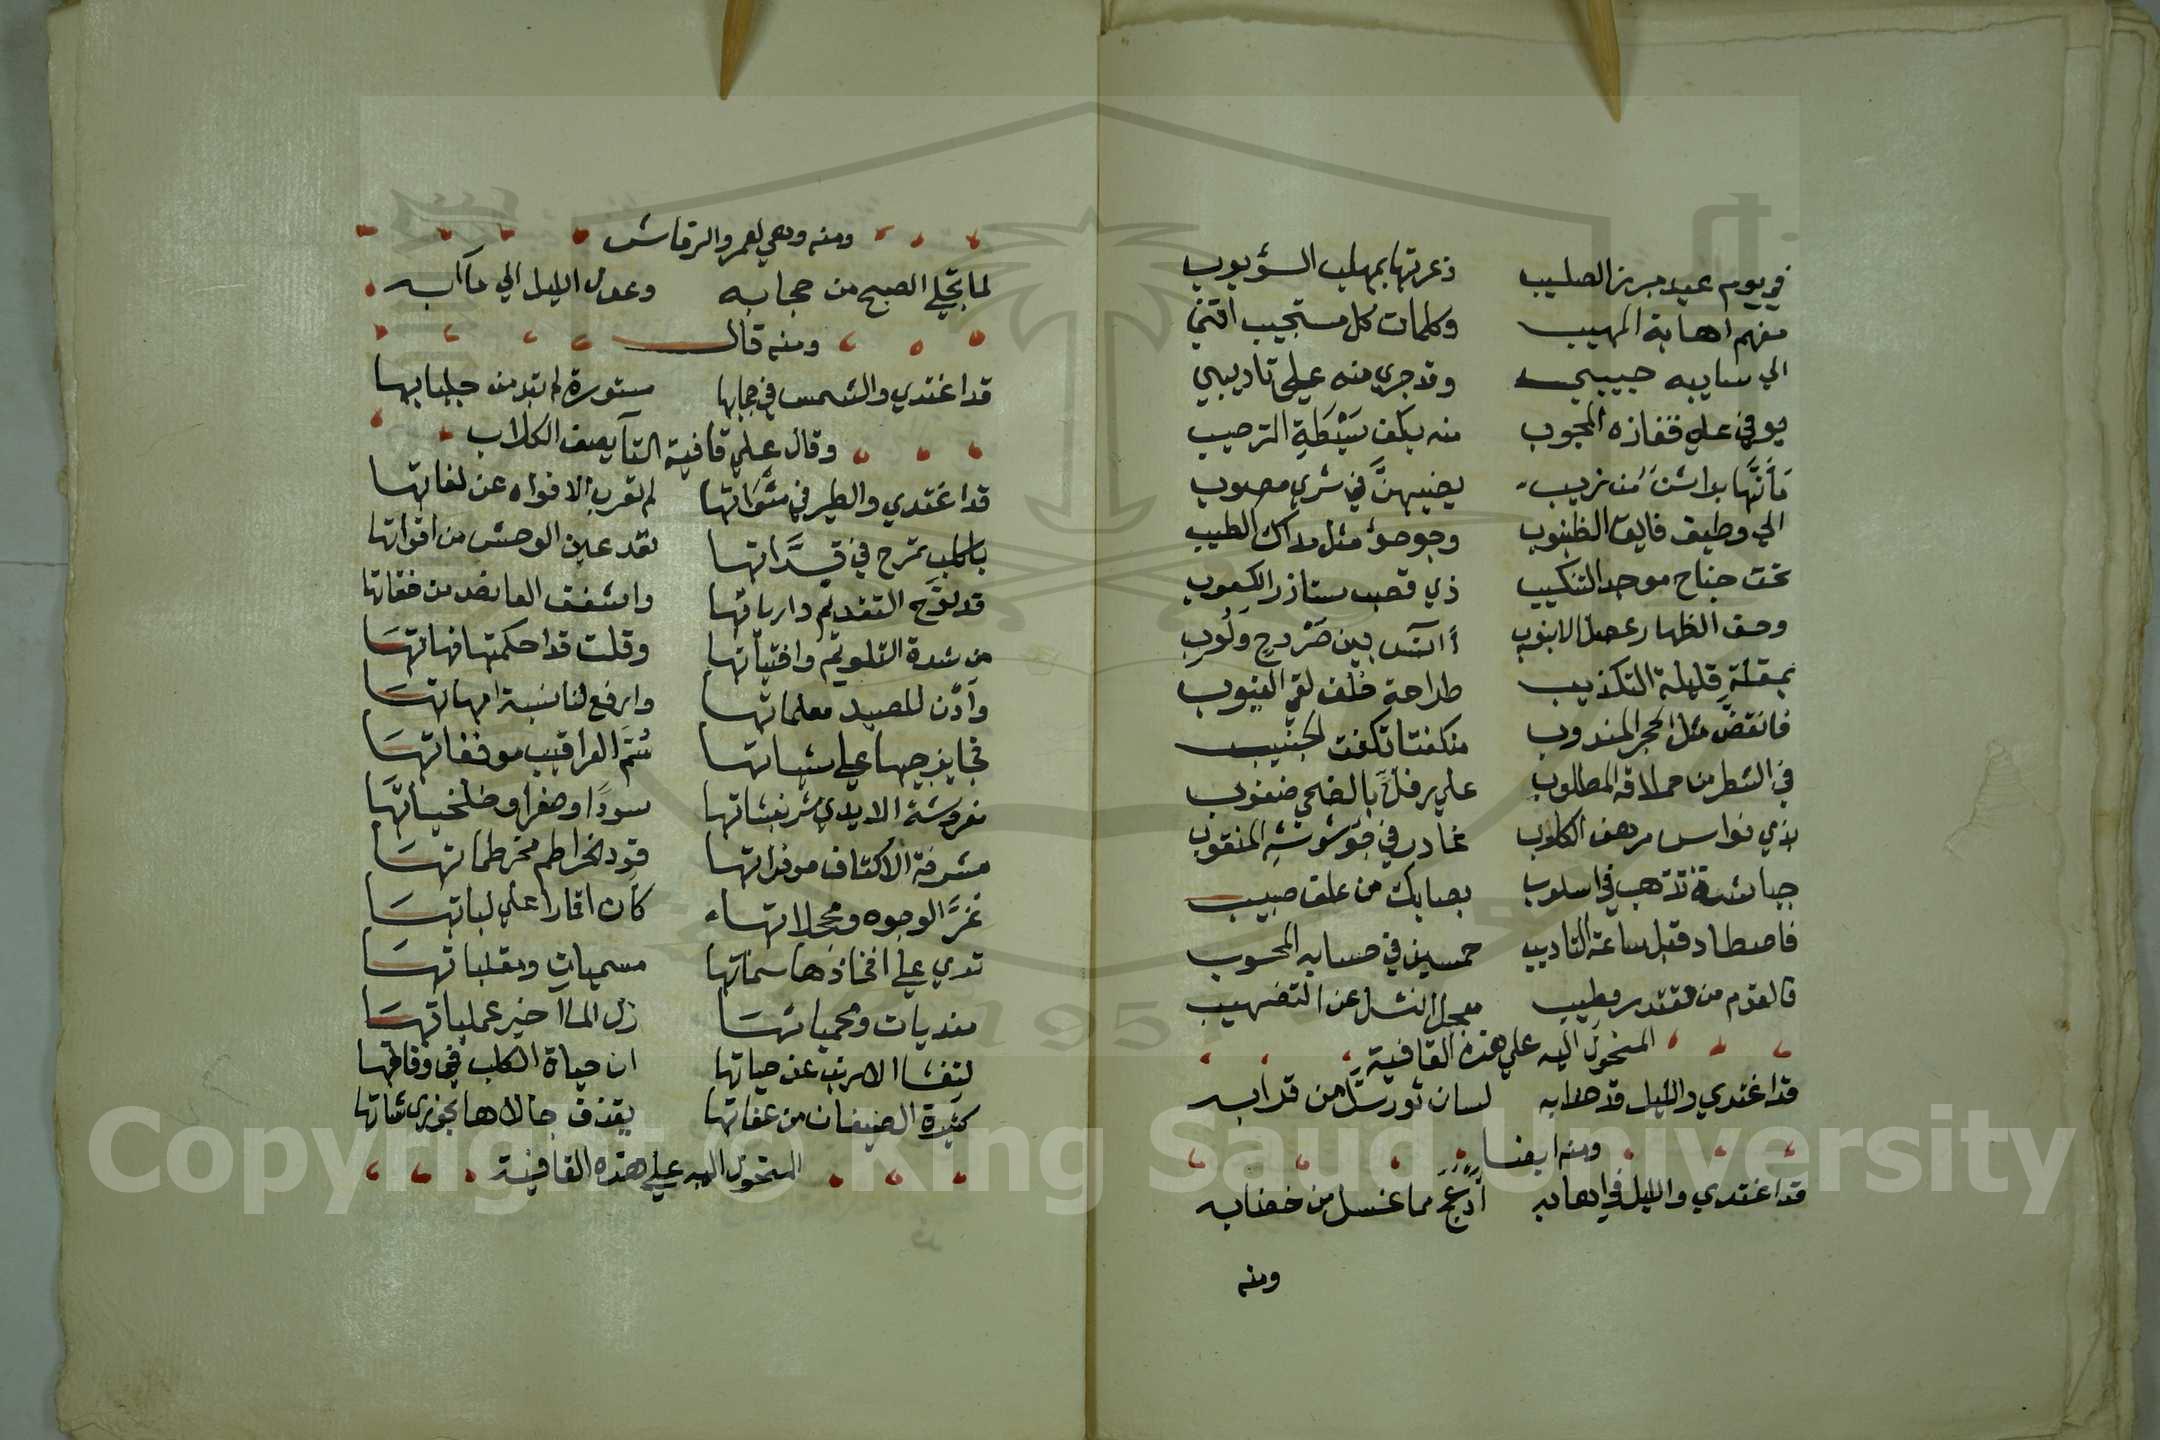 في يوم عيد مبرز الصليب ذعرتها بمهلب الشؤبوب
مفهم اهابة المهيب وكلمات كل مستجيب
الي سايبه حبيبي وقد جري منه علي تاديبي
يوفي علي قفازه المجوب منه بكف سبطة الترحيب
كأنها براثن من ذيب يضبثهن في ثري مصبوب
الي وظيف فايق الظنبوب وجوجوء مثل مداك الطيب
تحت جناح موجد التنكيب ذي قصب مستاذر الكعوب
وحف الظهار عصل الانبوب آنس بين صردح ولوب
بمقلة قليلة التكذيب طراحة خلف لقي الغيوب
فانقض مثل الحجر المندوب منكفتا تكفت الجنيب
في الشطر من حملاقه المطلوب علي رفل بالضحي ضغوب
بذي نواس مرهف الكلوب غادر في جوشوشه المنقوب
جياشة تذهب في اسلوب بصايك من علق صبيب
فاصطاد قبل ساعة التاديب خمسين في حسابه المحسوب
فالقوم من مقتدر وطيب معجل النشل عن التضهيب
المنحول اليه علي هذه القافية
قد اغتدي والليل قد هدا به لسان ثور سل من قرابه
ومنه ايضا
قد اغتدي والليل في اهابه ادعج مما غسل من خضابه
ومنه
ومنه وهي لعمرو الرقاشي
لما تجلي الصبح من حجابه وعدل الليل الي مآبه
ومنه قال
قد اغتدي والشمس في حجابها مستورة لم تبد من جلبابها
وقال علي قافية التآ يصف الكلاب
قد اغتدي والطير في مثواتها لم تعرب الافواه عن لغاتها
باكلب تمرح في قداتها تعد عين الوحش من اقواتها
قد لوح التقديم وارياتها واشفق القانص من خفاتها
من شدة التلويم وافتياتها وقلت قد احكمتها فهاتها
وادن للصيد معلماتها وارفع لنا نسبة امهاتها
فجا يزجيها علي شياتها شم العراقيب موفقاتها
مفروشة الايدي شرنبثاتها سودا وصفرا وخلنجياتها
مشرفة الاكتاف موفداتها قود الخراطيم مخرطماتها
غر الوجوه ومحجلاتها كان اقمارا علي لباتها
تري علي افخاذها سماتها مسميات وملقباتها
مفديات ومحمياتها زل المآخير عملياتها
لتفثا الارنب عن حياتها ان حياة الكلب في وفاتها
كثيرة الضيفان من عفاتها يقذف جالاها بجوزي شاتها
المنحول اليه علي هذه القافية